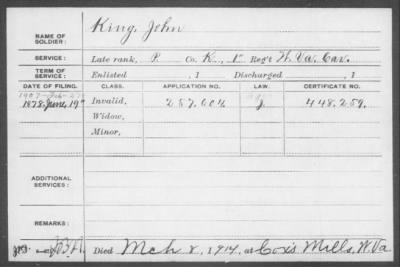 NAME OF SOLDIER: King, John
SERVICE: Late rank, P. Co. K., 1st Reg't W. Va. Cav.
TERM OF SERVICE: Enlisted , 1 Discharged , 1
DATE OF FILING. CLASS. APPLICATION NO. LAW. CERTIFICATE NO.
1878, June, 19th Invalid, 257.604 J. 448.259.
Widow,
Minor,
ADDITIONAL SERVICES:
REMARKS:
Died Mch 2, 1914, at Cox's Mills, W. Va